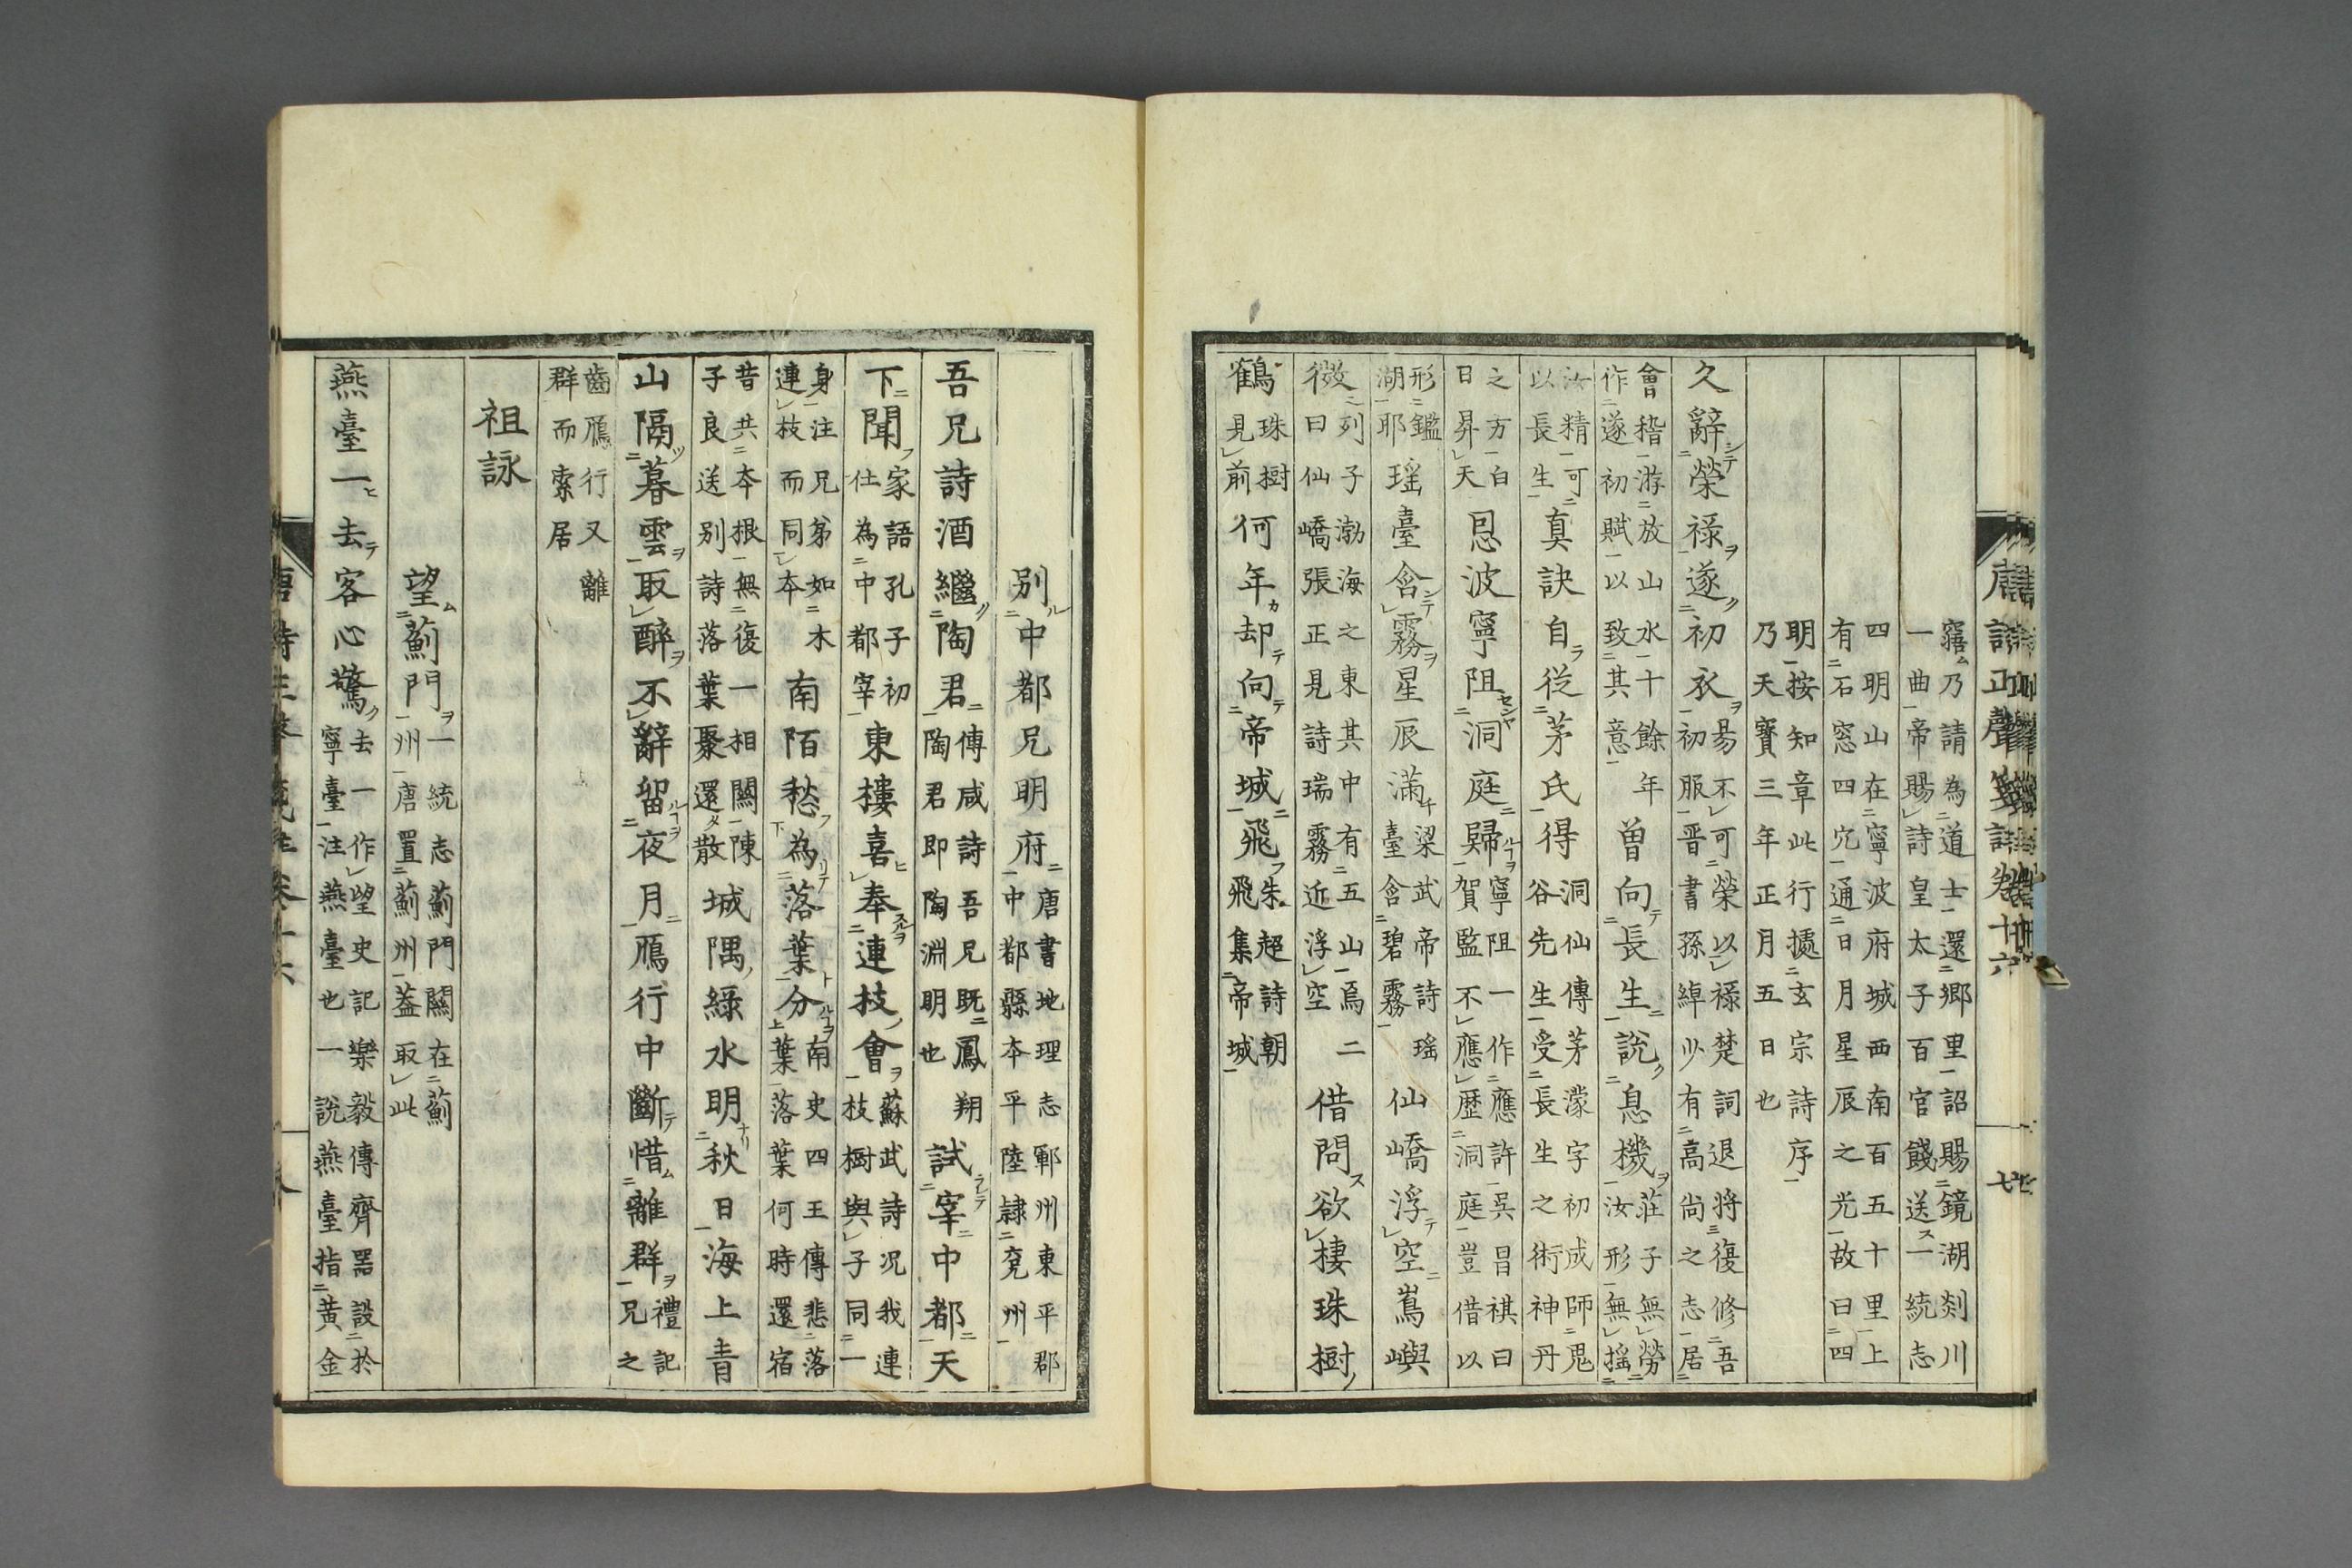 唐詩正聲箋註卷十六 七
寤乃請為道士還郷里詔賜鏡湖剡川
一曲帝賜詩皇太子百官餞送一統志
四明山在寧波府城西南百五十里上
有石窓四穴通日月星辰之光故曰四
明按知章此行據玄宗詩序
乃天寶三年正月五日也
久辭榮禄遂初衣
昜不可榮以禄楚詞退将復修吾
初服晋書孫綽少有高尚之志居
會稽游放山水十餘年
作遂初賦以致其意
曽向長生說息機
莊子無勞
汝形無搖
汝精可
以長生
真訣自從茅氏得
洞仙傳茅濛字初成師鬼
谷先生受長生之術神丹
之方白
日昇天
恩波寧阻洞庭歸
寧阻一作應許吳昌祺曰
賀監不應歷洞庭豈借以
形鑑
湖耶
瑶臺含霧星辰滿
梁武帝詩瑶
臺含碧霧
仙嶠浮空嶌嶼
微
列子渤海之東其中有五山焉二
曰仙嶠張正見詩瑞霧近浮空
借問欲棲珠樹
鶴
珠樹
見前
何年却向帝城飛
朱超詩朝
飛集帝城
别中都兄明府
唐書地理志鄆州東平郡
中都縣本平陸隷兗州
吾兄詩酒繼陶君
傅咸詩吾兄既鳳翔
陶君即陶淵明也
試宰中都天
下聞
家語孔子初
仕為中都宰
東樓喜奉連枝會
蘇武詩况我連
枝樹與子同一
身注兄弟如木
連枝而同本
南陌愁為落葉分
南史四王傳悲落
葉落葉何時還宿
昔共本根無復一相關陳
子良送别詩落葉聚還散
城隅緑水明秋日海上青
山隔暮雲取醉不辭留夜月鴈行中斷惜離群
禮記
兄之
齒鴈行又離
群而索居
祖詠
望薊門
一統志薊門關在薊
州唐置薊州葢取此
燕臺一去客心驚
去一作望史記樂毅傳齊器設於
寧臺注燕臺也一說燕臺指黄金